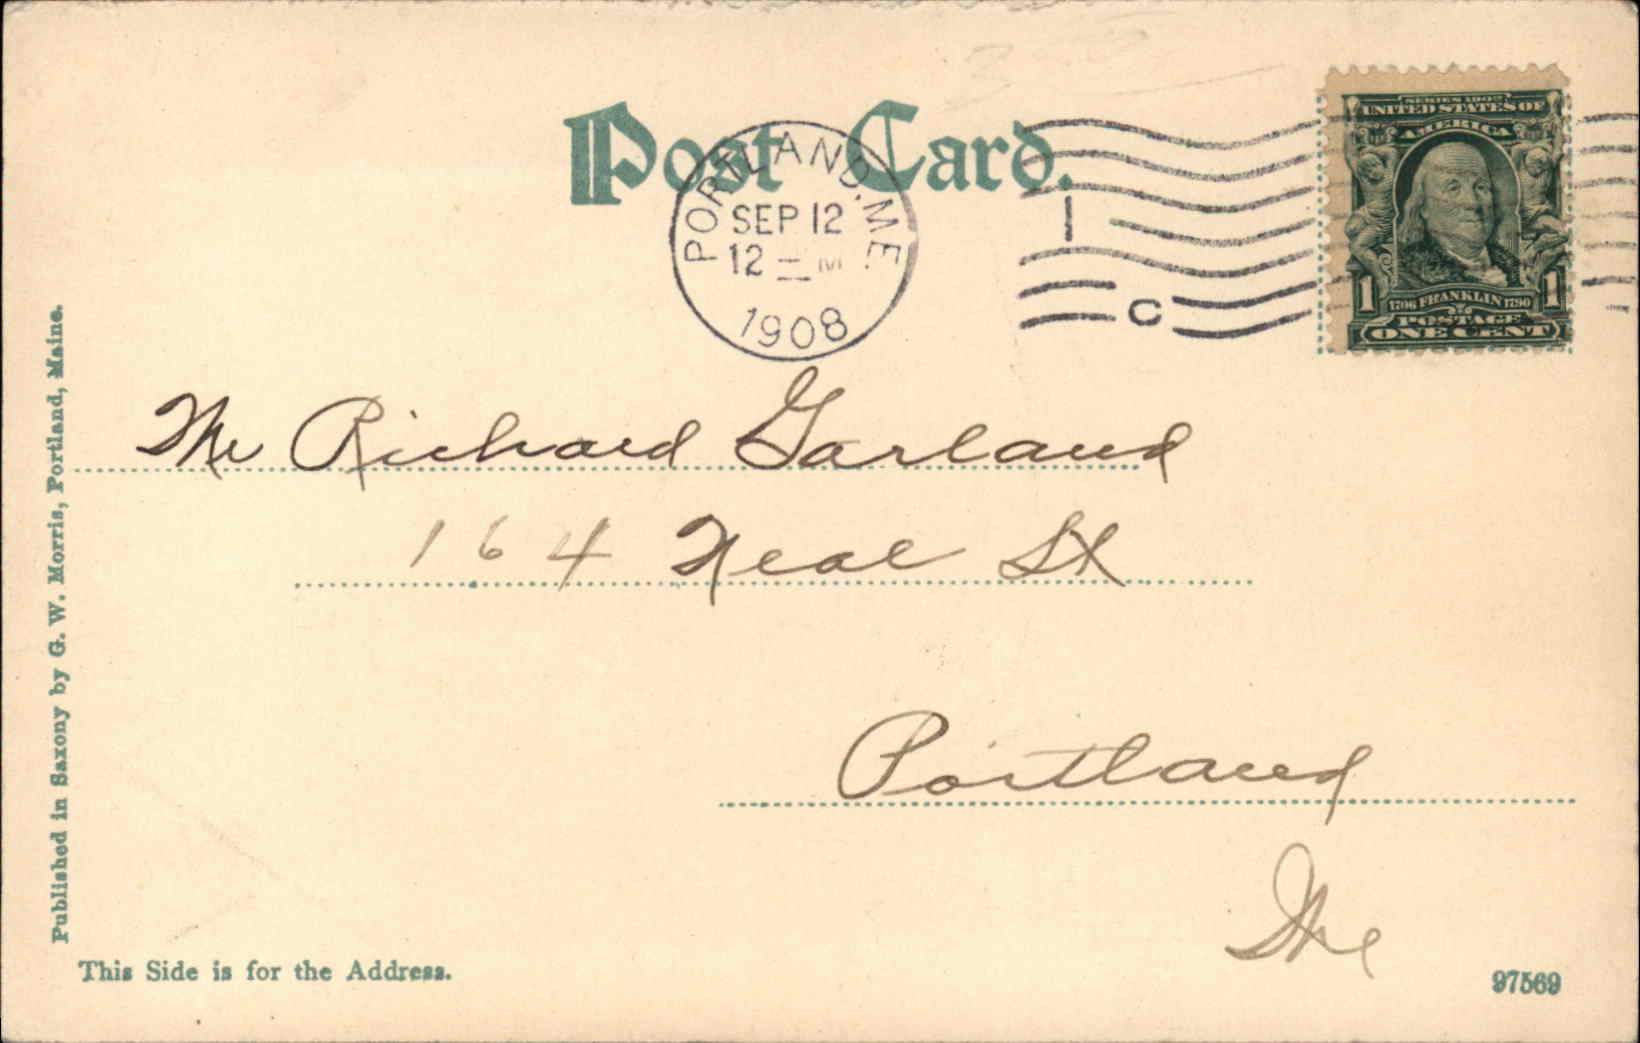 Post Card.
PORTLAND, ME.
SEP 12
12 M
1908
1
C
SERIES 1902
UNITED STATES OF
AMERICA
1 1706 FRANKLIN 1790 1
POSTAGE
ONE CENT
Mr Richard Garland
164 Neal St
Portland
Me
Published in Saxony by G. W. Morris, Portland, Maine.
This Side is for the Address.
97569